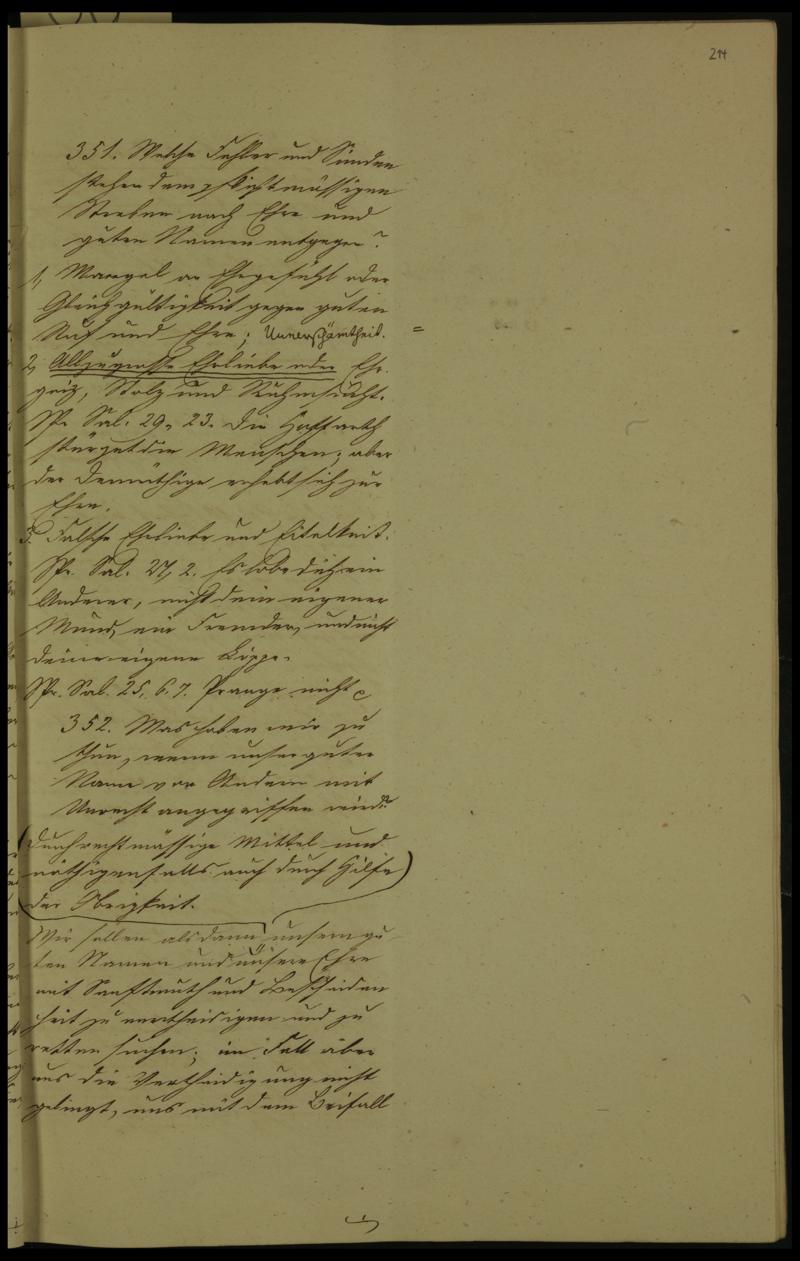 214
351. Welche Fehler und Sünden
stehen dem pflichtmässigen
Streben nach Ehre und
guten Namen entgegen?
1, Mangel an Ehrgefühl oder
Gleichgültigkeit gegen guten
Ruf und Ehre; Unverschämtheit. =
2, Allzugrosse Ehrliebe oder Ehr-
geiz, Stolz und Ruhmsucht.
Spr. Sal. 29, 23. Die Hoffarth
stürzet die Menschen; aber
der Demüthige erhebt sich zur
Ehre.
3. Falsche Ehrliebe und Eitelkeit.
Spr. Sal. 27, 2. Es lobe dich ein
Anderer, nicht dein eigener
Mund, ein Fremder, und nicht
deine eigene Lippe.
Spr. Sal. 25, 6. 7. Prange nicht
352. Was haben wir zu
thun, wenn unser guter
Name von Andern mit
Unrecht angegriffen wird?
(durch rechtmässige Mittel und
nöthigenfalls auch durch Hilfe
der Obrigkeit.)
Wir sollen alsdann unsern gu-
ten Namen und unsere Ehre
mit Sanftmuth und Bescheiden
heit zu vertheidigen und zu
retten suchen; im Fall aber
uns die Vertheidigung nicht
gelingt, uns mit dem Beifall